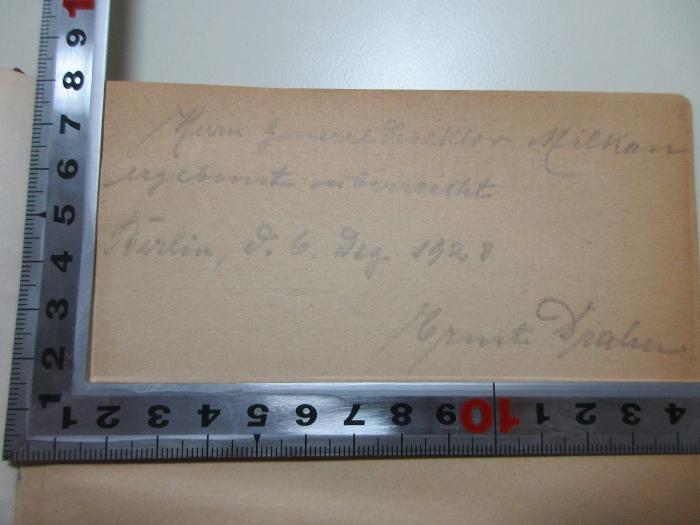 Herrn Generaldirektor Milkau
ergebenst überreicht.
Berlin, d. 6. Dez. 1928
Ernst Drahn
1 9 8 7 6 5 4 3 2 1
1 2 3 4 5 6 7 8 9 10 1 2 3 4